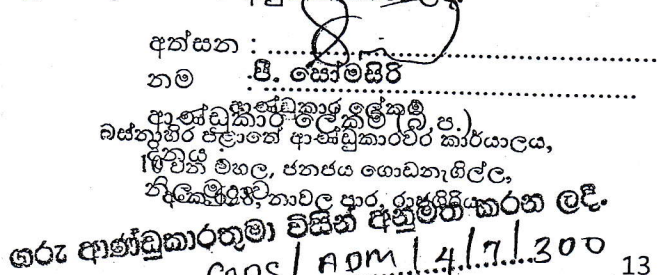 අත්සන :
නම : පී. සෝමසිරි
ආණ්ඩුකාර ලේකම්
ආණ්ඩුකාර ලේකම් (බ.ප.)
බස්නාහිර පළාතේ ආණ්ඩුකාරවර කාර්යාලය,
දිනය :
10 වන මහල, ජනජය ගොඩනැගිල්ල,
නාවල පාර, රාජගිරිය
ගරු ආණ්ඩුකාරතුමා විසින් අනුමත කරන ලදී.
/ ADM / 4 / 7 / 300
13